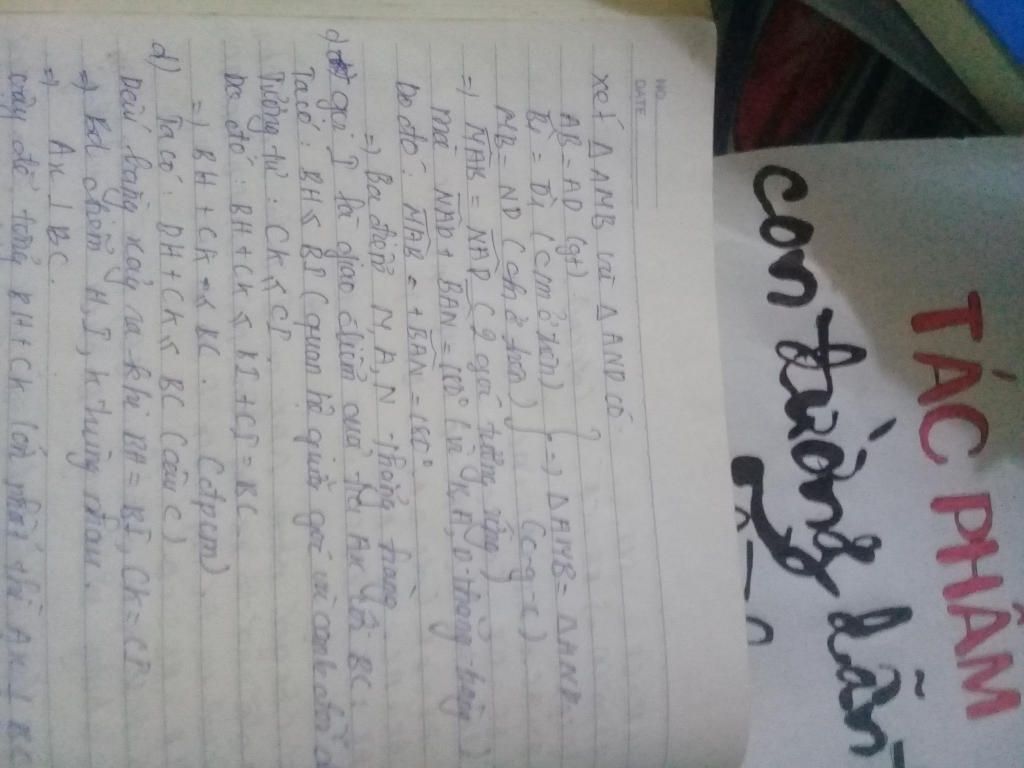 NO.
DATE
Xét Δ AMB và Δ AND có
AB = AD (gt)
B̂₁ = D̂₁ (cm ở trên) } => Δ AMB = Δ AND
MB = ND (cm ở trên) (c-g-c)
=> MAB = NAD (2 góc tương ứng)
mà NAD + BAN = 180° (vì B, A, D thẳng hàng)
Do đó: MAB + BAN = 180°
=> Ba điểm M, A, N thẳng hàng
c) gọi I là giao điểm của tia Ax và BC.
Ta có: BH ≤ BI (quan hệ giữa góc và cạnh đối
Tương tự: CK ≤ CI
Do đó: BH + CK ≤ BI + CI = BC
=> BH + CK ≤ BC. (đpcm)
d) Ta có: BH + CK ≤ BC (câu c)
Dấu bằng xảy ra khi BH = BI, CK = CI
=> Ba điểm H, I, K trùng nhau.
=> Ax ⊥ BC.
Vậy để tổng BH + CK lớn nhất thì Ax ⊥ BC
TÁC PHẨM
con đường dẫn